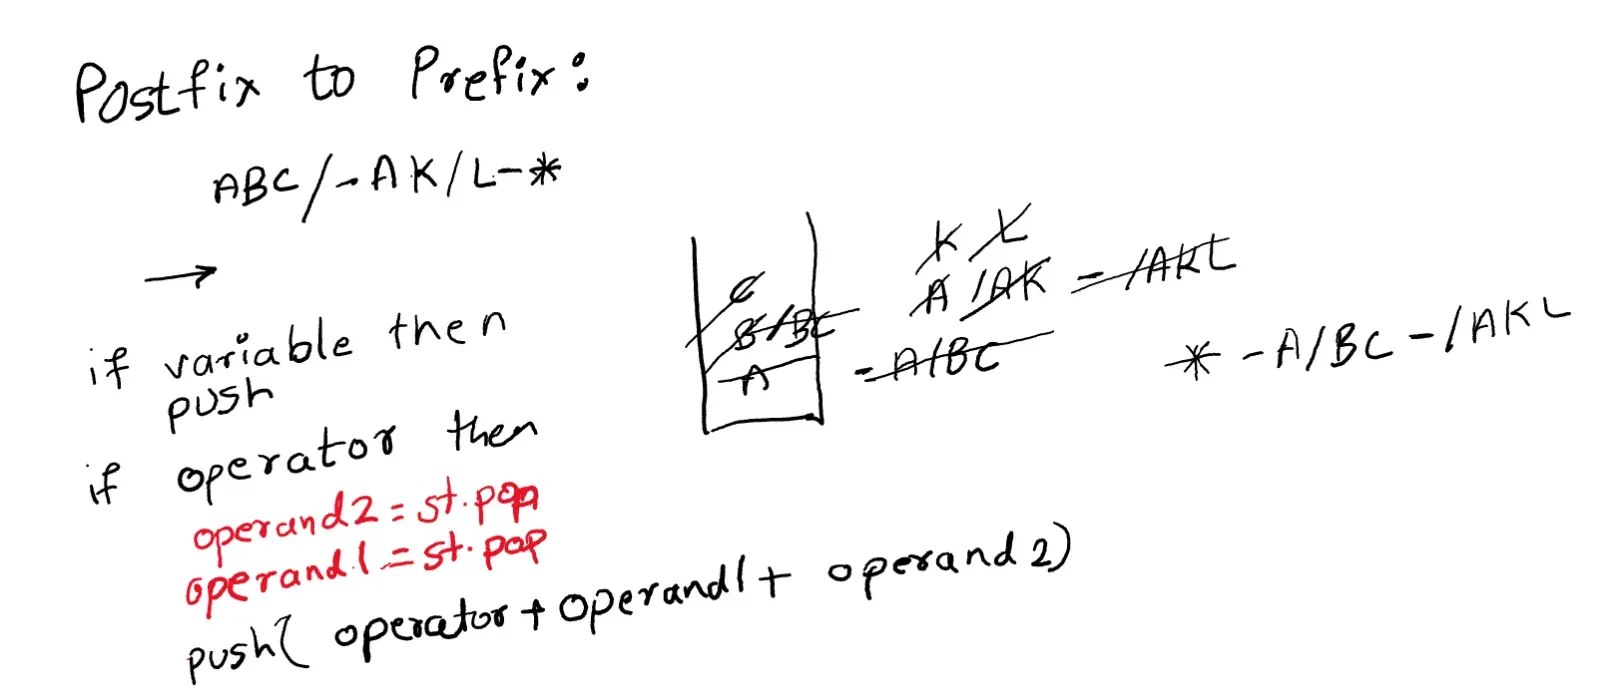 Postfix to Prefix:
ABC/-AK/L-*
→
if variable then
push
if operator then
operand2 = st.pop
operand1 = st.pop
push( operator + operand1 + operand2)
C
B /BC
A
-A/BC
K L
A /AK -/AKL
* -A/BC -/AKL